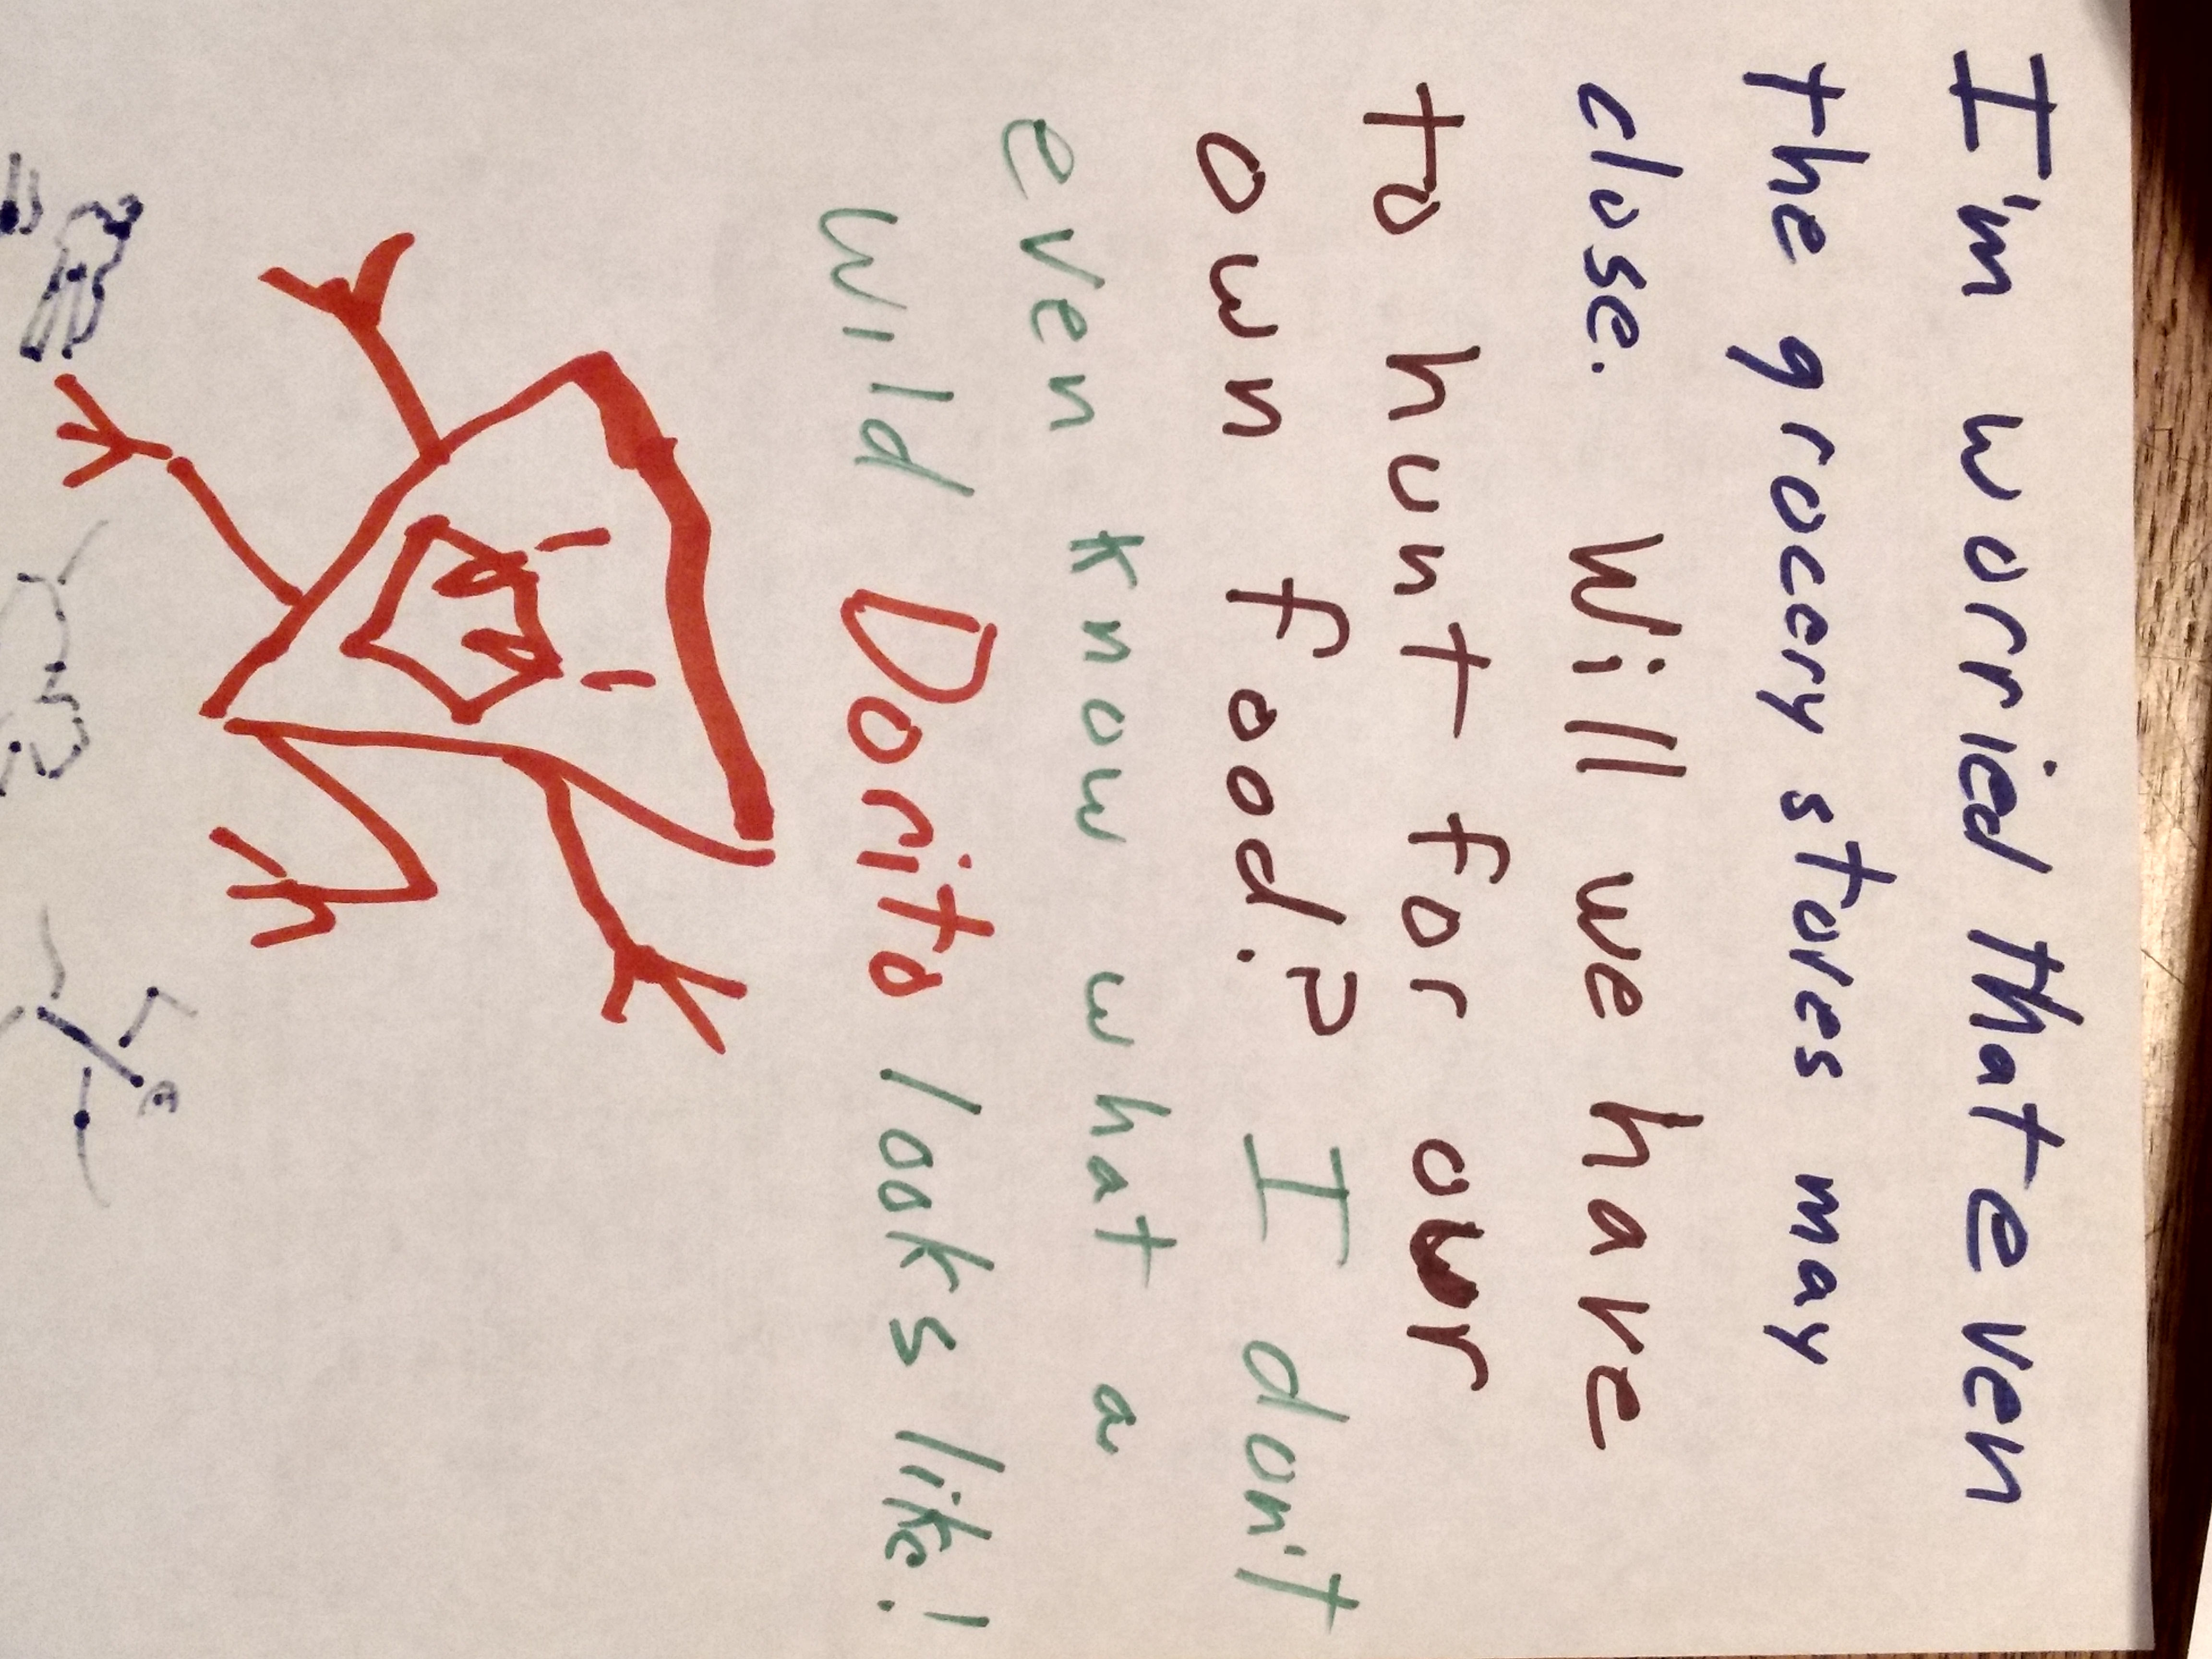 I'm worried that even
the grocery stores may
close. Will we have
to hunt for our
own food? I don't
even know what a
wild Dorito looks like!